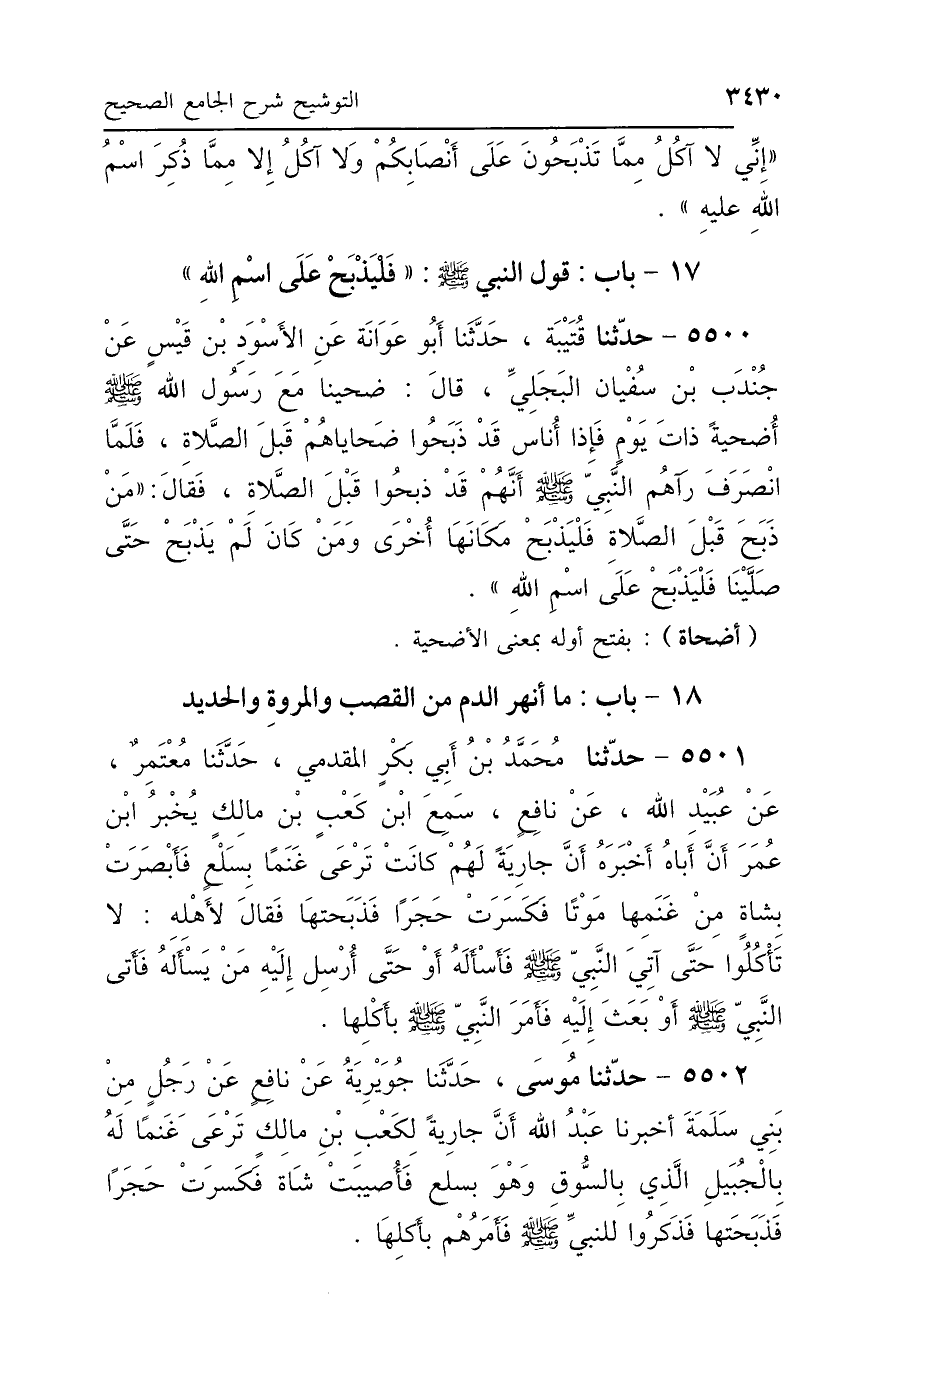 ٣٤٣٠ التوشيح شرح الجامع الصحيح
«إِنِّي لا آكُلُ مِمَّا تَذْبَحُونَ عَلَى أَنْصَابِكُمْ وَلا آكُلُ إِلا مِمَّا ذُكِرَ اسْمُ
اللهِ عليهِ » .
١٧ - باب : قول النبي ﷺ : « فَلْيَذْبَحْ عَلَى اسْمِ اللهِ »
٥٥٠٠ - حدّثنا قُتَيْبَة ، حَدَّثَنا أَبُو عَوَانَة عَنِ الأَسْوَدِ بْن قَيْسٍ عَنْ
جُنْدَب بْن سُفْيان البَجَلِيِّ ، قالَ : ضحينا مَعَ رَسُول الله ﷺ
أُضحيةً ذاتَ يَوْمٍ فَإِذا أُناس قَدْ ذَبَحُوا ضَحاياهُمْ قَبلَ الصَّلاةِ ، فَلَمَّا
انْصَرَفَ رَآهُم النَّبِيّ ﷺ أَنَّهُمْ قَد ذبحُوا قَبْلَ الصَّلاةِ ، فَقالَ: «مَنْ
ذَبَحَ قَبْلَ الصَّلاةِ فَلْيَذْبَحْ مَكَانَهَا أُخْرَى وَمَنْ كَانَ لَمْ يَذْبَحْ حَتَّى
صَلَّيْنَا فَلْيَذْبَحْ عَلَى اسْمِ اللهِ » .
( أضحاة ) : بفتح أوله بمعنى الأضحية .
١٨ - باب : ما أنهر الدم من القصب والمروةِ والحديد
٥٥٠١ - حدّثنا مُحَمَّدُ بْنُ أَبِي بَكْرٍ المقدمي ، حَدَّثَنا مُعْتَمِرٌ ،
عَنْ عُبَيْدِ الله ، عَنْ نافِعٍ ، سَمِعَ ابْن كَعْبٍ بْن مالكٍ يُخْبِرُ ابْن
عُمَرَ أَنَّ أَباهُ أَخْبَرَهُ أَنَّ جاريَةً لَهُمْ كانَتْ تَرْعَى غَنَمًا بِسَلْعٍ فَأَبْصَرَتْ
بِشاةٍ مِنْ غَنَمِها مَوْتًا فَكَسَرَتْ حَجَرًا فَذَبَحتهَا فَقالَ لأَهْلِهِ : لا
تَأْكُلُوا حَتَّى آتِيَ النَّبِيّ ﷺ فَأَسْأَلَهُ أَوْ حَتَّى أُرْسِل إِلَيْهِ مَنْ يَسْأَلهُ فَأَتى
النَّبِيّ ﷺ أَوْ بَعَثَ إِلَيْهِ فَأَمَرَ النَّبِيّ ﷺ بأكْلِها .
٥٥٠٢ - حدّثنا مُوسَى ، حَدَّثَنا جُوَيْرِيَةُ عَنْ نافِعٍ عَنْ رَجُلٍ مِنْ
بَنِي سَلَمَةَ أخبرنا عبْدُ الله أَنَّ جاريةً لِكَعْبِ بْنِ مالكٍ تَرْعَى غَنَمًا لَهُ
بِالْجُبَيلِ الَّذي بِالسُّوقِ وَهْوَ بسلع فَأُصيبَتْ شَاة فَكَسرَتْ حَجَرًا
فَذَبَحَتها فَذَكَرُوا للنبيِّ ﷺ فَأَمَرُهْم بأكلِهَا .